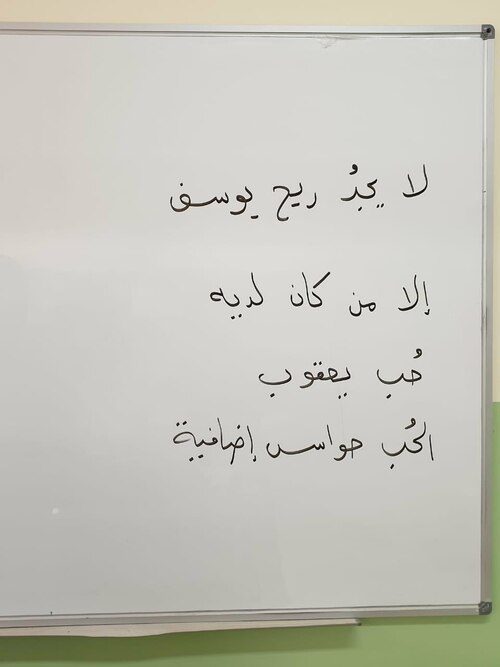 لا يجدُ ريح يوسف
إلا من كان لديه
حُب يعقوب
الحُب حواس إضافية